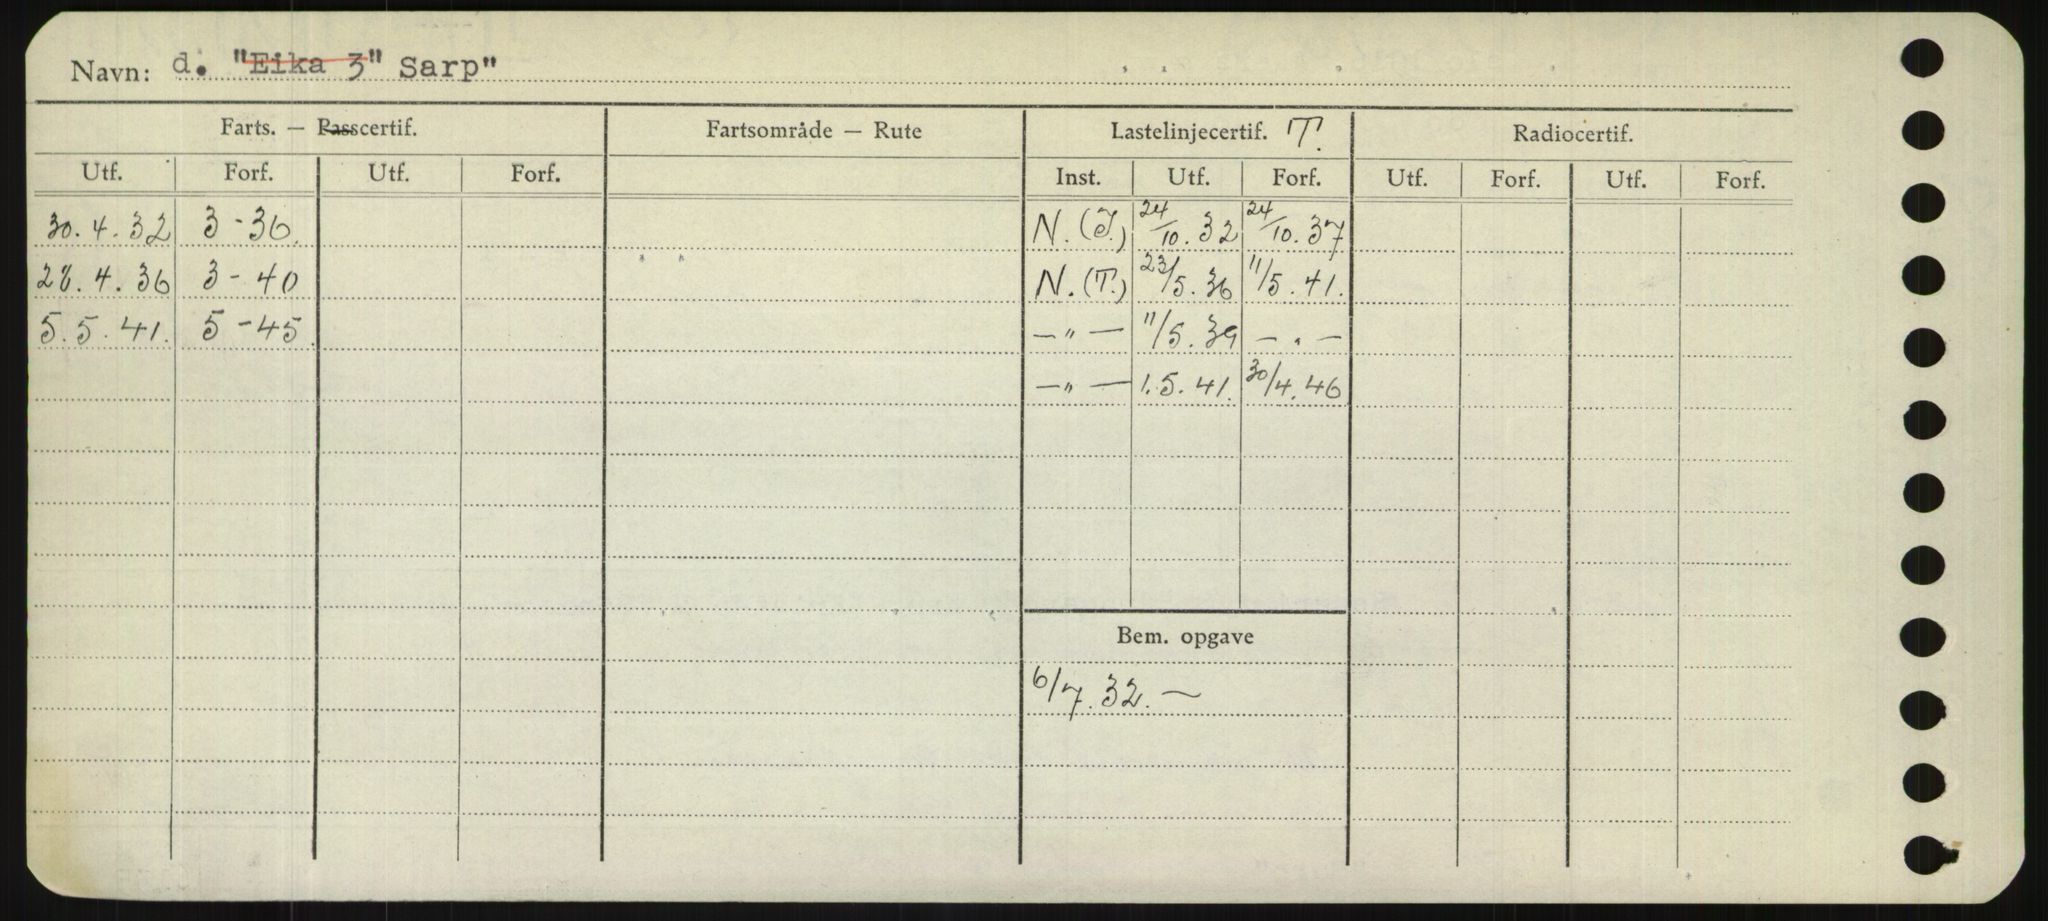 Navn: d. "Eika 3" Sarp"
Farts. — Passcertif. Fartsområde — Rute Lastelinjecertif. T. Radiocertif.
Utf. Forf. Utf. Forf. Inst. Utf. Forf. Utf. Forf. Utf. Forf.
30.4.32 3-36. N.(T.) 24/10.32 24/10.37
28.4.36 3-40 N.(T.) 23/5.36 11/5.41.
5.5.41. 5-45. —"— 11/5.39 —"—
—"— 1.5.41. 30/4.46
Bem. opgave
6/7.32. —